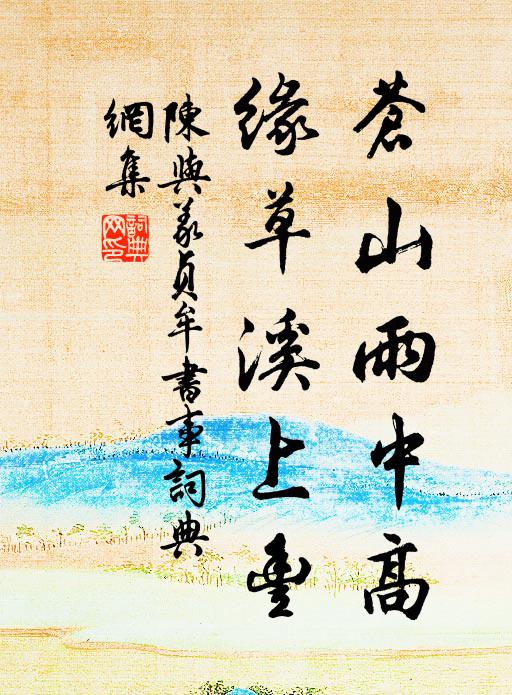 蒼山雨中高
緣草溪上豐
陳與義貞牟書事詞典
網集
詞典網印